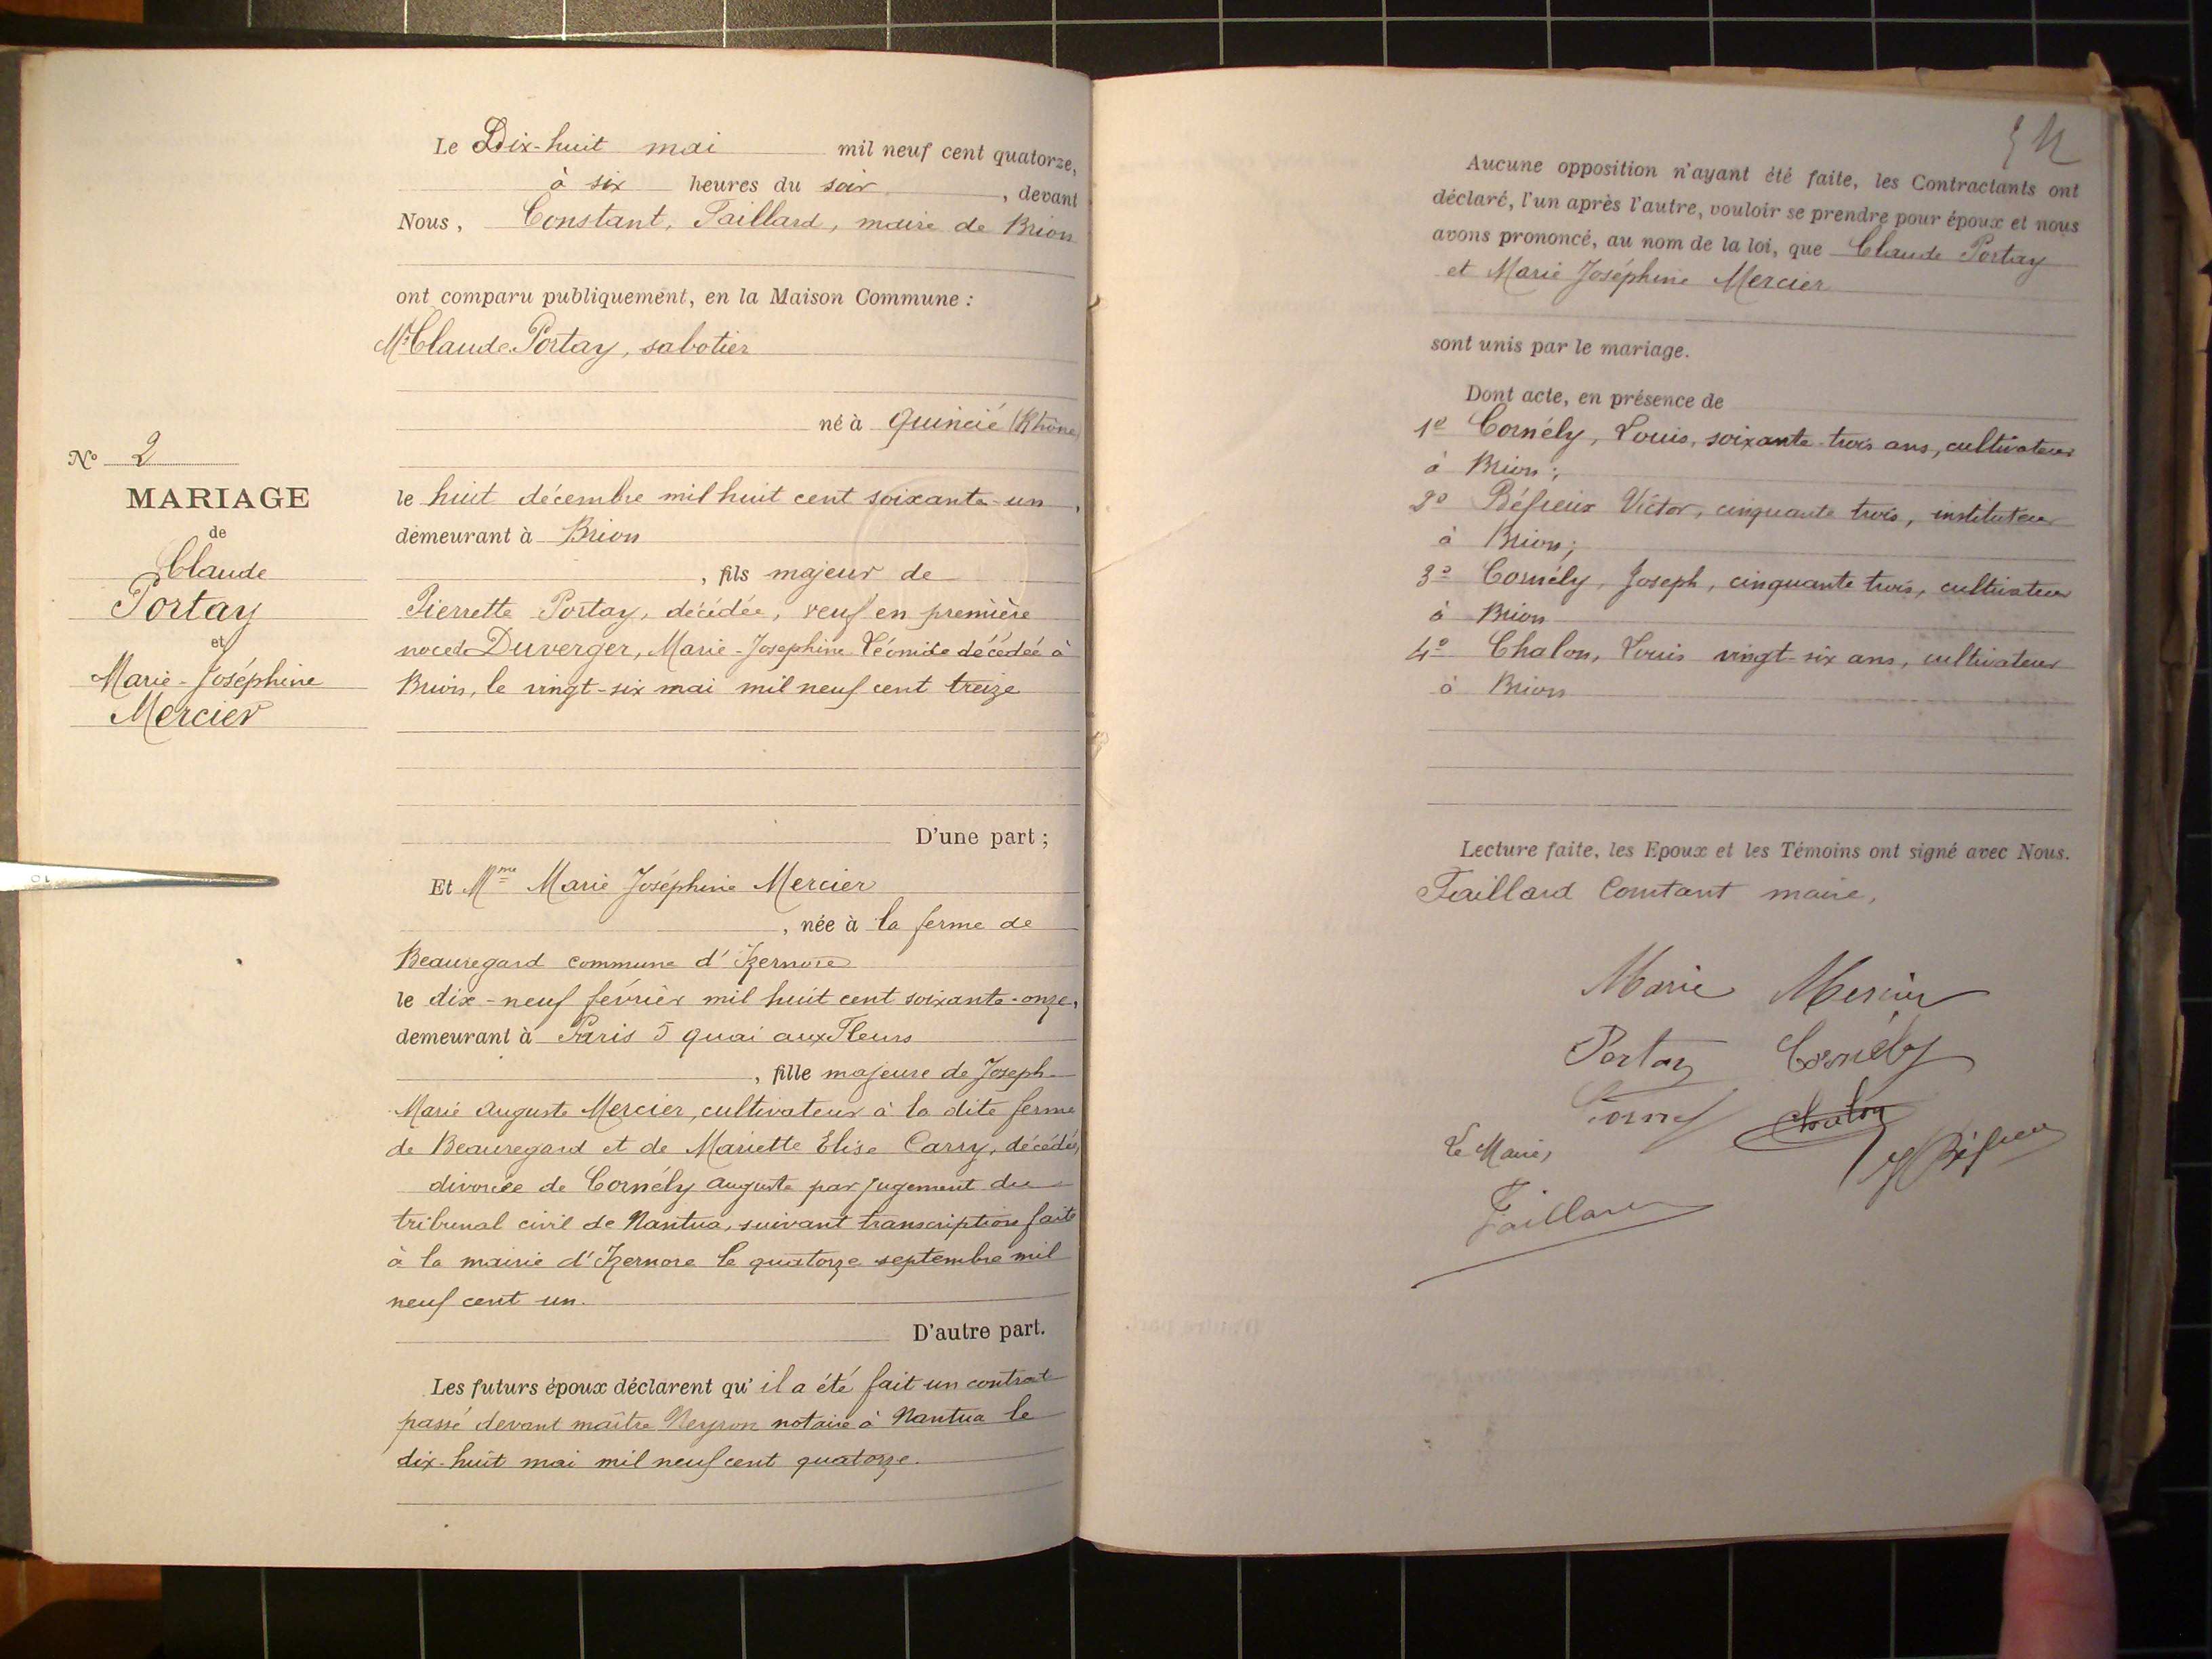 Le Dix-huit mai mil neuf cent quatorze,
à six heures du soir, devant
Nous, Constant, Taillard, maire de Brion
ont comparu publiquement, en la Maison Commune :
Mr Claude Portay, sabotier
né à Quincié (Rhône)
N° 2
MARIAGE
de
Claude
Portay
et
Marie-Joséphine
Mercier
le huit décembre mil huit cent soixante-un,
demeurant à Brion
, fils majeur de
Pierrette Portay, décédée, veuf en première
noce de Duverger, Marie-Josephine Léonide décédée à
Brion, le vingt-six mai mil neuf cent treize
D'une part ;
Et Mme Marie Joséphine Mercier
, née à la ferme de
Beauregard commune d'Izernore
le dix-neuf février mil huit cent soixante-onze,
demeurant à Paris 5 quai aux Fleurs
, fille majeure de Joseph
Marie Auguste Mercier, cultivateur à la dite ferme
de Beauregard et de Mariette Elise Carry, décédée,
divorcée de Cornély Auguste par jugement du
tribunal civil de Nantua, suivant transcription faite
à la mairie d'Izernore le quatorze septembre mil
neuf cent un.
D'autre part.
Les futurs époux déclarent qu'il a été fait un contrat
passé devant maître Neyron notaire à Nantua le
dix-huit mai mil neuf cent quatorze.
Aucune opposition n'ayant été faite, les Contractants ont
déclaré, l'un après l'autre, vouloir se prendre pour époux et nous
avons prononcé, au nom de la loi, que Claude Portay
et Marie Joséphine Mercier
sont unis par le mariage.
Dont acte, en présence de
1° Cornély, Louis, soixante-trois ans, cultivateur
à Brion ;
2° Béfieux Victor, cinquante trois, instituteur
à Brion ;
3° Cornély, Joseph, cinquante trois, cultivateur
à Brion
4° Chalon, Louis vingt-six ans, cultivateur
à Brion
Lecture faite, les Epoux et les Témoins ont signé avec Nous.
Taillard Constant maire,
Marie Mercier
Portay Cornély
Chalon
Le Maire,
Taillard